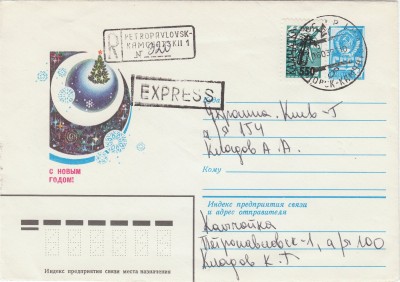 R
PETROPAVLOVSK-
KAMCHATSKII 1
№ 920
КАМЧАТКА
550
EXPRESS
Куда
Украина. Киев-
а/я 154
Кладов А. А.
Кому
С НОВЫМ
ГОДОМ!
Индекс предприятия связи
и адрес отправителя
Камчатка
Петропавловск-1, а/я 100
Кладов К. Г
Индекс предприятия связи места назначения